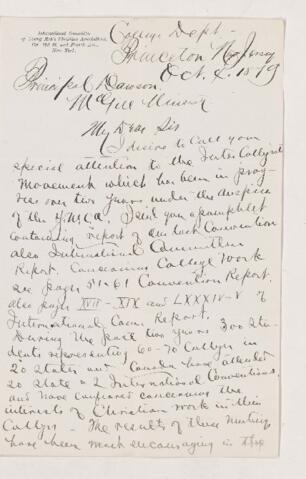 International Committee
of Young Men's Christian Associations,
Cor. 23d St. and Fourth Ave.,
New York.
College Dept.
Princeton N. Jersey
Oct. 4. 1879
Principal Dawson.
McGill
My Dear Sir
I desire to call your
special attention to the Inter Collegiate
movement which has been in prog-
ress over two years under the auspices
of the Y.M.C.A. I send you a pamphlet
containing report of our last Convention
also International Committee
Report. Concerning College Work
see pages 51-61 Convention Report,
also pages XVII - XIX and LXXXIV-V of
International Com. Report.
During the past two years 300 stu-
dents representing 60-70 Colleges in
20 States and Canada have attended
20 State & 2 International Conventions,
and have conferred concerning the
interests of Christian work in their
Colleges - The results of these meetings
have been most encouraging in the